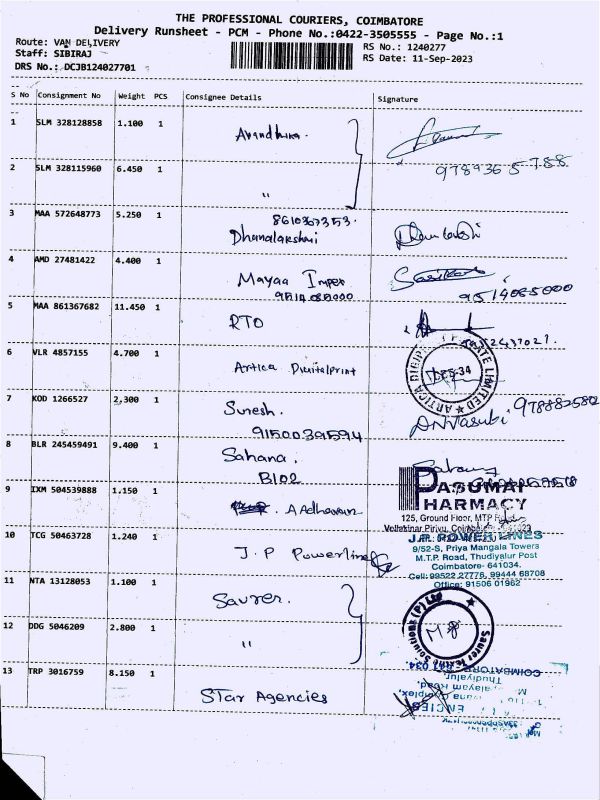 THE PROFESSIONAL COURIERS, COIMBATORE
Delivery Runsheet - PCM - Phone No.:0422-3505555 - Page No.:1
Route: VAN DELIVERY
Staff: SIBIRAJ
DRS No.: DCJB124027701
RS No.: 1240277
RS Date: 11-Sep-2023
S No Consignment No Weight PCS Consignee Details Signature
1 SLM 328128858 1.100 1
2 SLM 328115960 6.450 1 "
3 MAA 572648773 5.250 1 8610367353. Dhanalakshmi
4 AMD 27481422 4.400 1 Mayaa Impex
9514085000 9514085000
5 MAA 861367682 11.450 1 RTO
6 VLR 4857155 4.700 1 Artica Digitelprint
ARTICA LIMITED
7 KOD 1266527 2.300 1 Suresh.
91500 39594
8 BLR 245459491 9.400 1 Sahana.
B102
9 IXM 504539888 1.150 1
PASUMAI
PHARMACY
125, Ground Floor, MTP Road,
10 TCG 50463728 1.240 1 J.P Powerlines
J.P. POWER LINES
9/52-S, Priya Mangala Towers
M.T.P. Road, Thudiyalur Post
Coimbatore- 641034.
Cell: 99522 27776, 99444 68708
Office: 91506 01962
11 NTA 13128053 1.100 1 Saurer.
12 DDG 5046209 2.800 1 "
Saurer Textile Solutions (P) Ltd
13 TRP 3016759 8.150 1 STar Agencies
COIMBATORE - 641 034.
Thudiyalur,